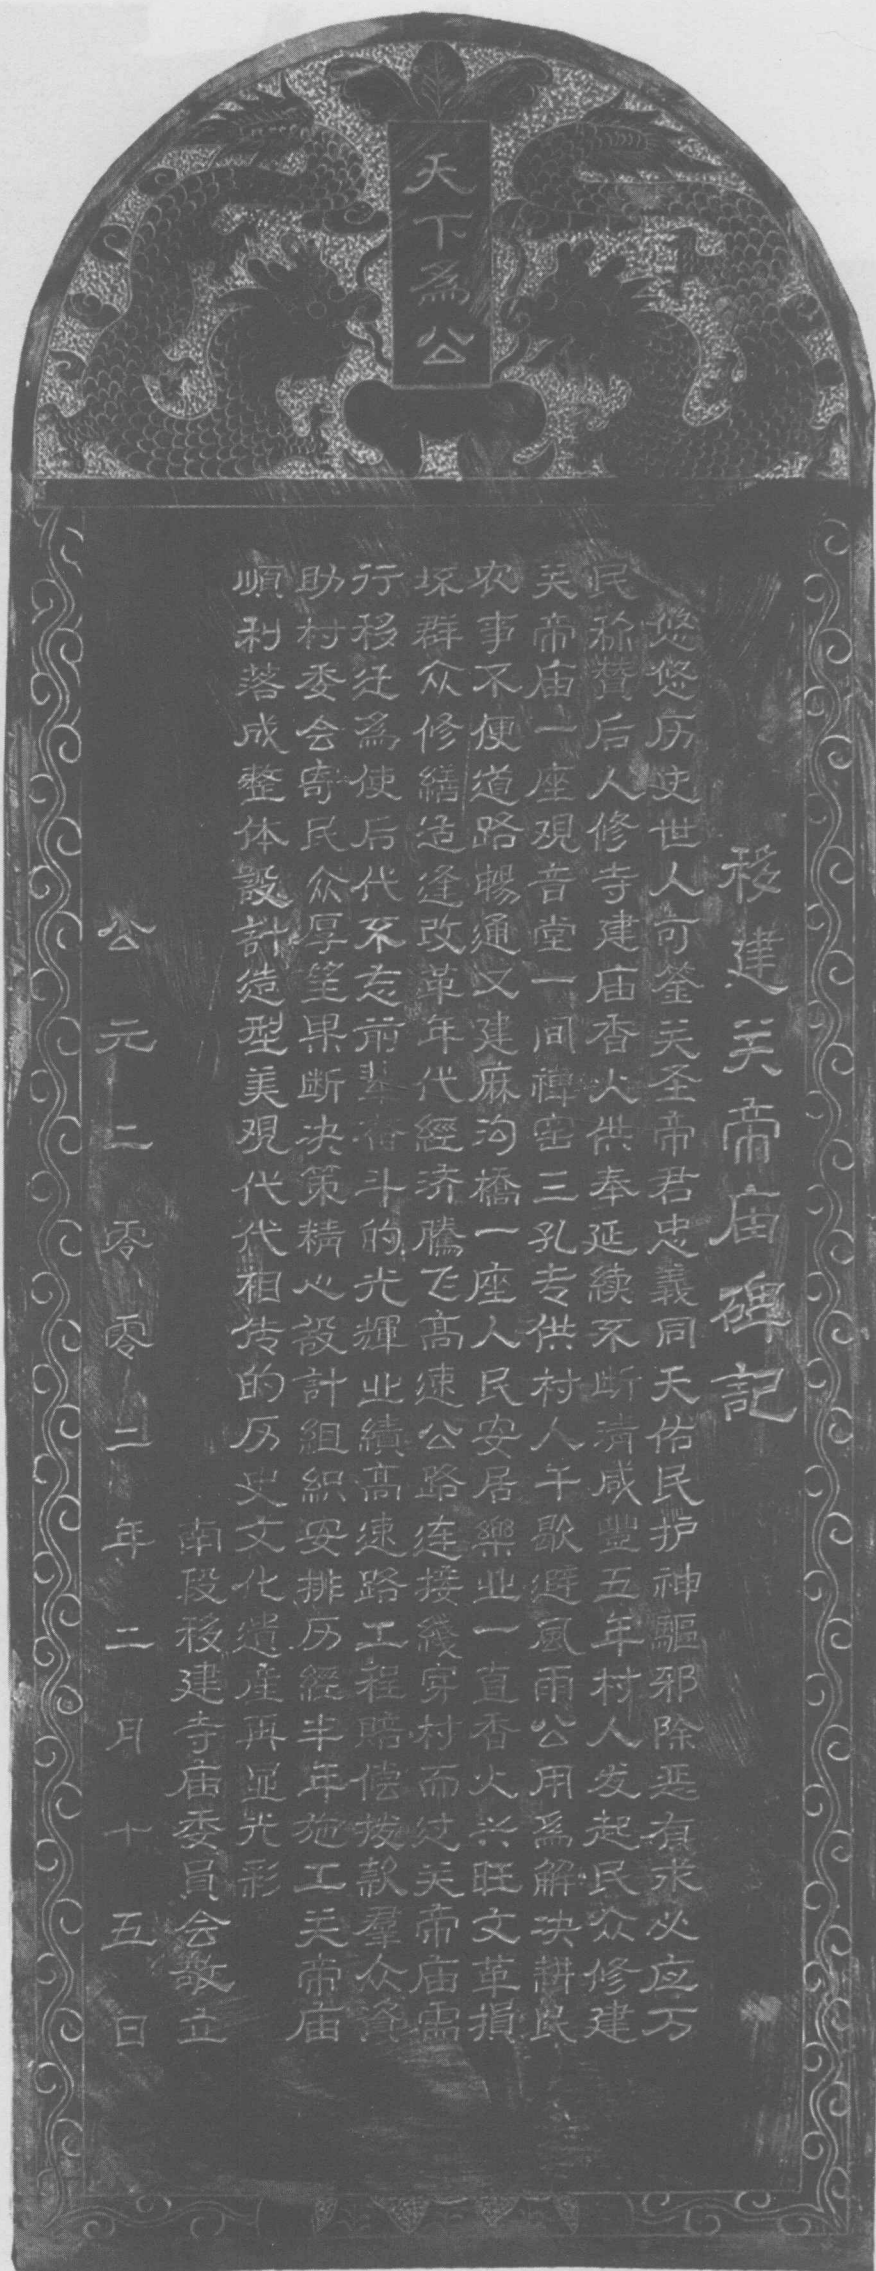 天下為公
移建关帝庙碑記
悠悠历史世人可鉴关圣帝君忠義同天佑民护神驅邪除恶有求必应万
民称贊后人修寺建庙香火供奉延續不断清咸豐五年村人发起民众修建
关帝庙一座观音堂一间禅窑三孔专供村人午歇避風雨公用為解决耕民
农事不便道路暢通又建麻沟橋一座人民安居樂业一直香火兴旺文革損
坏群众修繕适逢改革年代經济騰飞高速公路连接綫穿村而过关帝庙需
行移迁為使后代不忘前輩奋斗的光輝业績高速路工程賠偿拨款羣众資
助村委会寄民众厚筐果断决策精心設計組織安排历經半年施工关帝庙
順利落成整体設計造型美观代代相传的历史文化遺産再显光彩
南段移建寺庙委員会敬立
公元二零零二年二月十五日